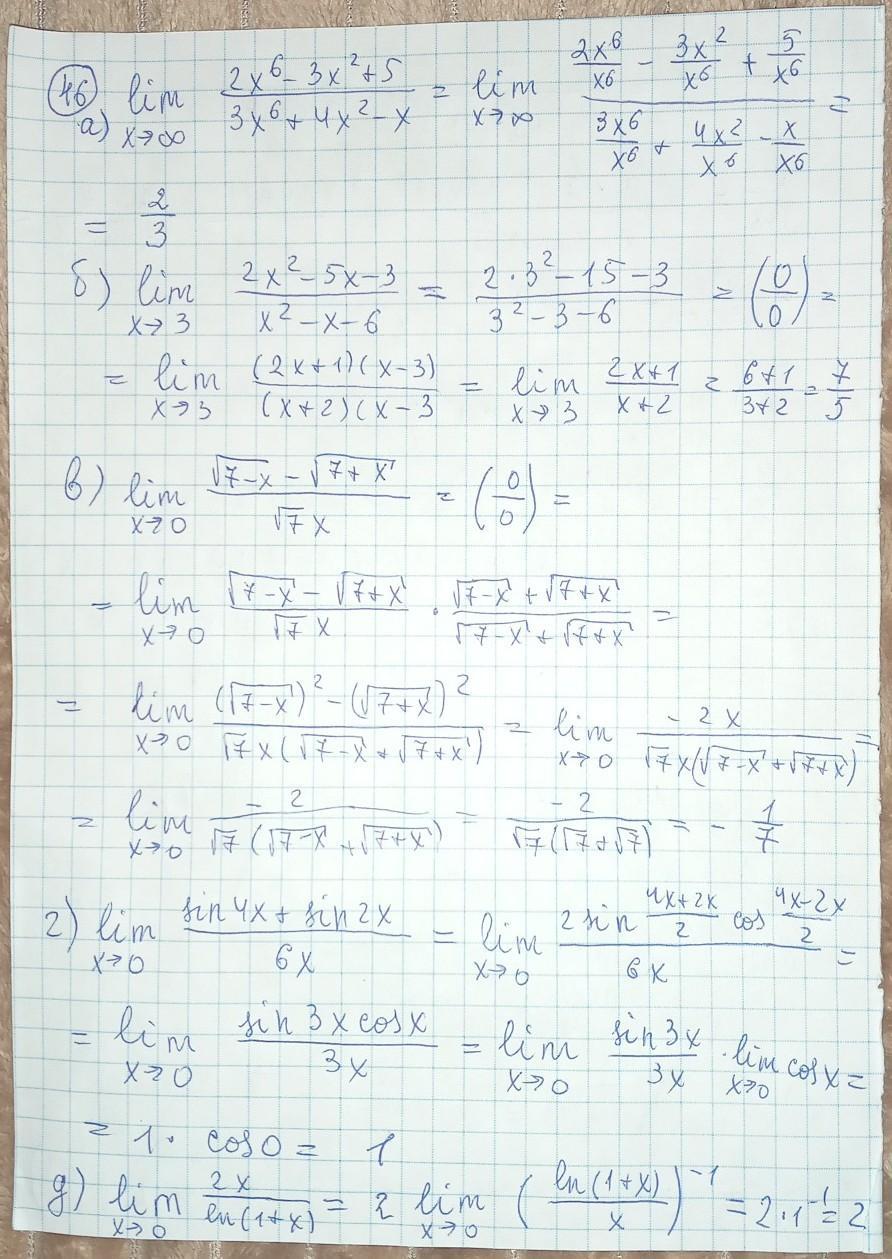 46 а) lim x→∞ (2x⁶ - 3x² + 5)/(3x⁶ + 4x² - x) = lim x→∞ (2x⁶/x⁶ - 3x²/x⁶ + 5/x⁶)/(3x⁶/x⁶ + 4x²/x⁶ - x/x⁶) =
= 2/3
б) lim x→3 (2x² - 5x - 3)/(x² - x - 6) = (2·3² - 15 - 3)/(3² - 3 - 6) = (0/0) =
= lim x→3 (2x+1)(x-3)/(x+2)(x-3 = lim x→3 (2x+1)/(x+2) = (6+1)/(3+2) = 7/5
в) lim x→0 (√(7-x) - √(7+x))/(√7 x) = (0/0) =
= lim x→0 (√(7-x) - √(7+x))/(√7 x) · (√(7-x) + √(7+x))/(√(7-x) + √(7+x)) =
= lim x→0 ((√(7-x))² - (√(7+x))²)/(√7 x(√(7-x) + √(7+x))) = lim x→0 (-2x)/(√7 x(√(7-x) + √(7+x))) =
= lim x→0 (-2)/(√7 (√(7-x) + √(7+x))) = (-2)/(√7(√7+√7)) = - 1/7
г) lim x→0 (sin 4x + sin 2x)/(6x) = lim x→0 (2 sin (4x+2x)/2 cos (4x-2x)/2)/(6x) =
= lim x→0 (sin 3x cos x)/(3x) = lim x→0 (sin 3x)/(3x) · lim x→0 cos x =
= 1 · cos 0 = 1
д) lim x→0 (2x)/(ln(1+x)) = 2 lim x→0 (ln(1+x)/x)⁻¹ = 2·1⁻¹ = 2